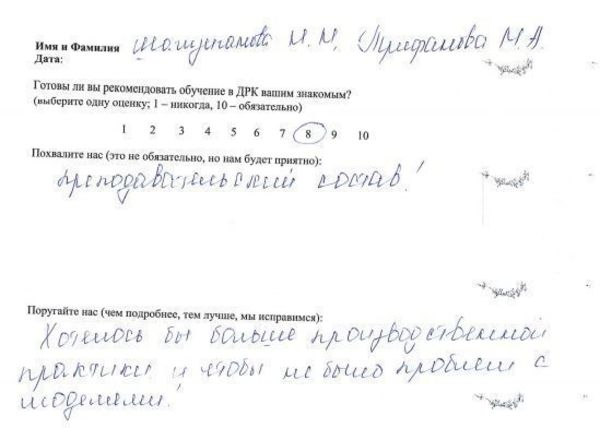 Имя и Фамилия Шамуратова М.М. Трифанова М.А.
Дата:
Готовы ли вы рекомендовать обучение в ДРК вашим знакомым?
(выберите одну оценку; 1 – никогда, 10 – обязательно)
1 2 3 4 5 6 7 8 9 10
Похвалите нас (это не обязательно, но нам будет приятно):
преподавательский состав!
Поругайте нас (чем подробнее, тем лучше, мы исправимся):
Хотелось бы больше производственной
практики и чтобы не было проблем с
моделями!